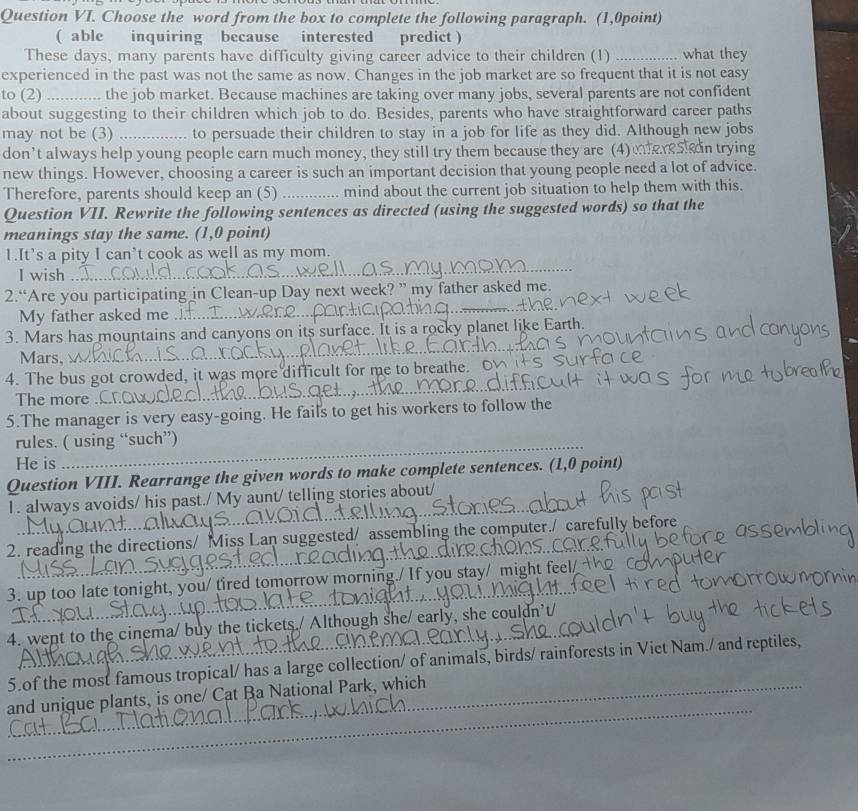 Question VI. Choose the word from the box to complete the following paragraph. (1,0point)
( able inquiring because interested predict )
These days, many parents have difficulty giving career advice to their children (1) ............... what they
experienced in the past was not the same as now. Changes in the job market are so frequent that it is not easy
to (2) ............. the job market. Because machines are taking over many jobs, several parents are not confident
about suggesting to their children which job to do. Besides, parents who have straightforward career paths
may not be (3) ................ to persuade their children to stay in a job for life as they did. Although new jobs
don't always help young people earn much money, they still try them because they are (4) interested in trying
new things. However, choosing a career is such an important decision that young people need a lot of advice.
Therefore, parents should keep an (5) .............. mind about the current job situation to help them with this.
Question VII. Rewrite the following sentences as directed (using the suggested words) so that the
meanings stay the same. (1,0 point)
1.It's a pity I can't cook as well as my mom.
I wish I could cook as well as my mom
2."Are you participating in Clean-up Day next week? " my father asked me.
My father asked me if I were participating the next week
3. Mars has mountains and canyons on its surface. It is a rocky planet like Earth.
Mars, which is a rocky planet like Earth, has mountains and canyons
on its surface
4. The bus got crowded, it was more difficult for me to breathe.
The more crawded the bus get, the more difficult it was for me to breathe
5.The manager is very easy-going. He fails to get his workers to follow the
rules. ( using "such")
He is
Question VIII. Rearrange the given words to make complete sentences. (1,0 point)
1. always avoids/ his past./ My aunt/ telling stories about/
My aunt always avoid telling stories about his past
2. reading the directions/ Miss Lan suggested/ assembling the computer./ carefully before
Miss Lan suggested reading the directions carefully before assembling
the computer
3. up too late tonight, you/ tired tomorrow morning./ If you stay/ might feel/
If you stay up too late tonight, you might feel tired tomorrow mornin
4. went to the cinema/ buy the tickets./ Although she/ early, she couldn't/
Although she went to the cinema early, she couldn't buy the tickets
5.of the most famous tropical/ has a large collection/ of animals, birds/ rainforests in Viet Nam./ and reptiles,
and unique plants, is one/ Cat Ba National Park, which
Cat Ba National Park, which